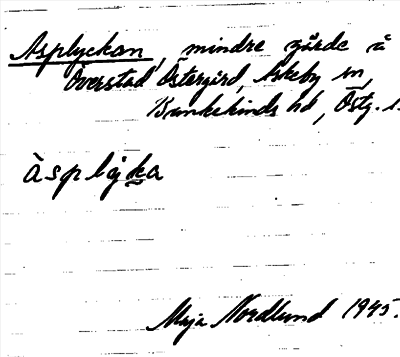 Asplyckan, mindre gärde å
Överstad Östergård, Askeby sn,
Bankekinds hd, Östg. l.
àsplỳka
Maja Nordlund 1945.